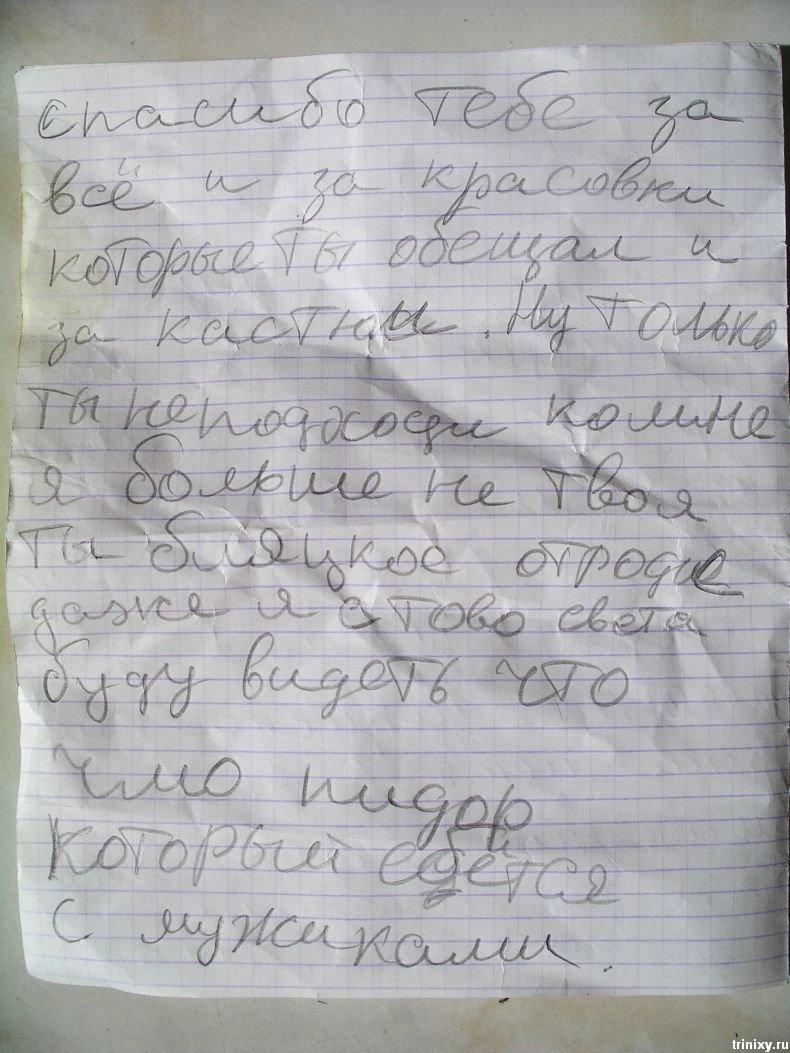 спасибо тебе за
всё и за красовки
которые ты обещал и
за кастюм. Ну только
ты неподходи комне
я больше не твоя
ты бляцкое отродие
даже я с тово света
буду видеть что
чмо пидор
который ебётся
с мужиками.
trinixy.ru